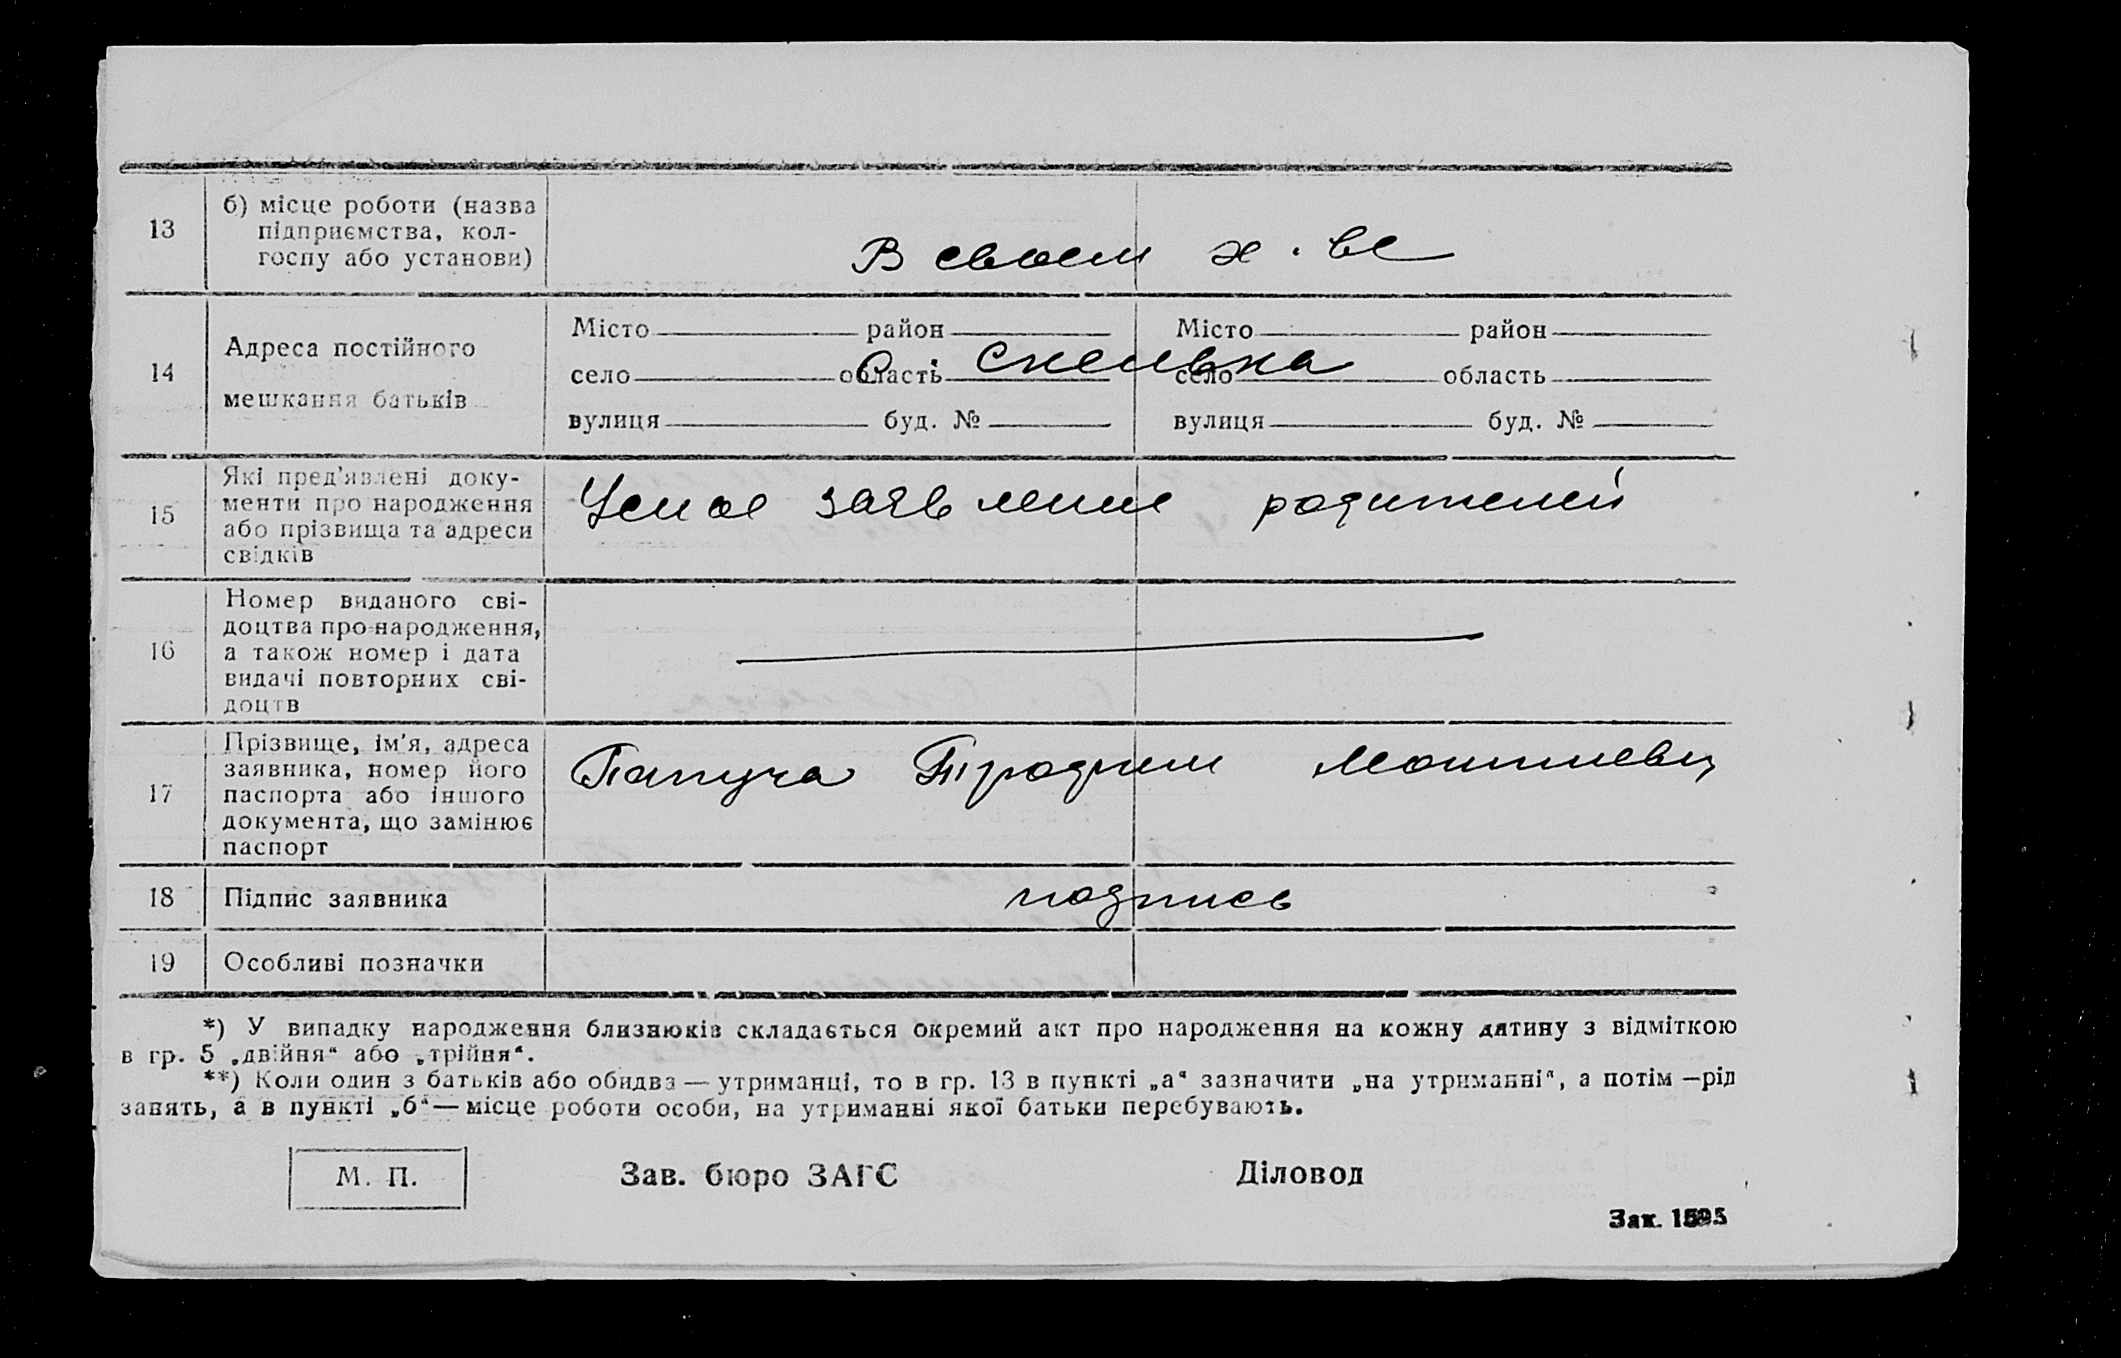 13
б) місце роботи (назва
підприємства, кол-
госпу або установи)
В своем х-ве
14
Адреса постійного
мешкання батьків
Місто район
село область
вулиця буд. №
Місто район
село область
вулиця буд. №
с. Скелька
15
Які пред'явлені доку-
менти про народження
або прізвища та адреси
свідків
Усное заявление родителей
16
Номер виданого сві-
доцтва про народження,
а також номер і дата
видачі повторних сві-
доцтв
17
Прізвище, ім'я, адреса
заявника, номер його
паспорта або іншого
документа, що замінює
паспорт
Папуча
18
Підпис заявника
подпись
19
Особливі позначки
*) У випадку народження близнюків складається окремий акт про народження на кожну дитину з відміткою
в гр. 5 „двійня“ або „трійня“.
**) Коли один з батьків або обидва — утриманці, то в гр. 13 в пункті „а“ зазначити „на утриманні“, а потім —рід
занять, а в пункті „б“— місце роботи особи, на утриманні якої батьки перебувають.
М. П.
Зав. бюро ЗАГС
Діловод
Зак.